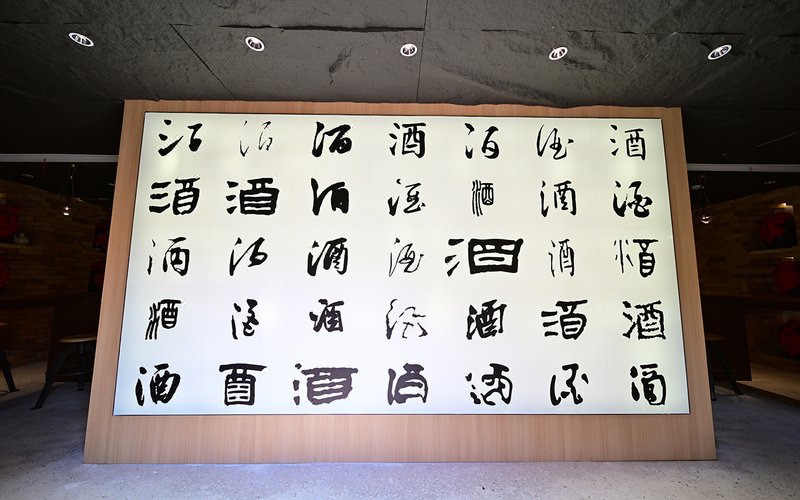 酒 酒 酒 酒 酒 酒 酒
酒 酒 酒 酒 酒 酒 酒
酒 酒 酒 酒 酒 酒 酒
酒 酒 酒 酒 酒 酒 酒
酒 酉 酒 酒 酒 酒 酒